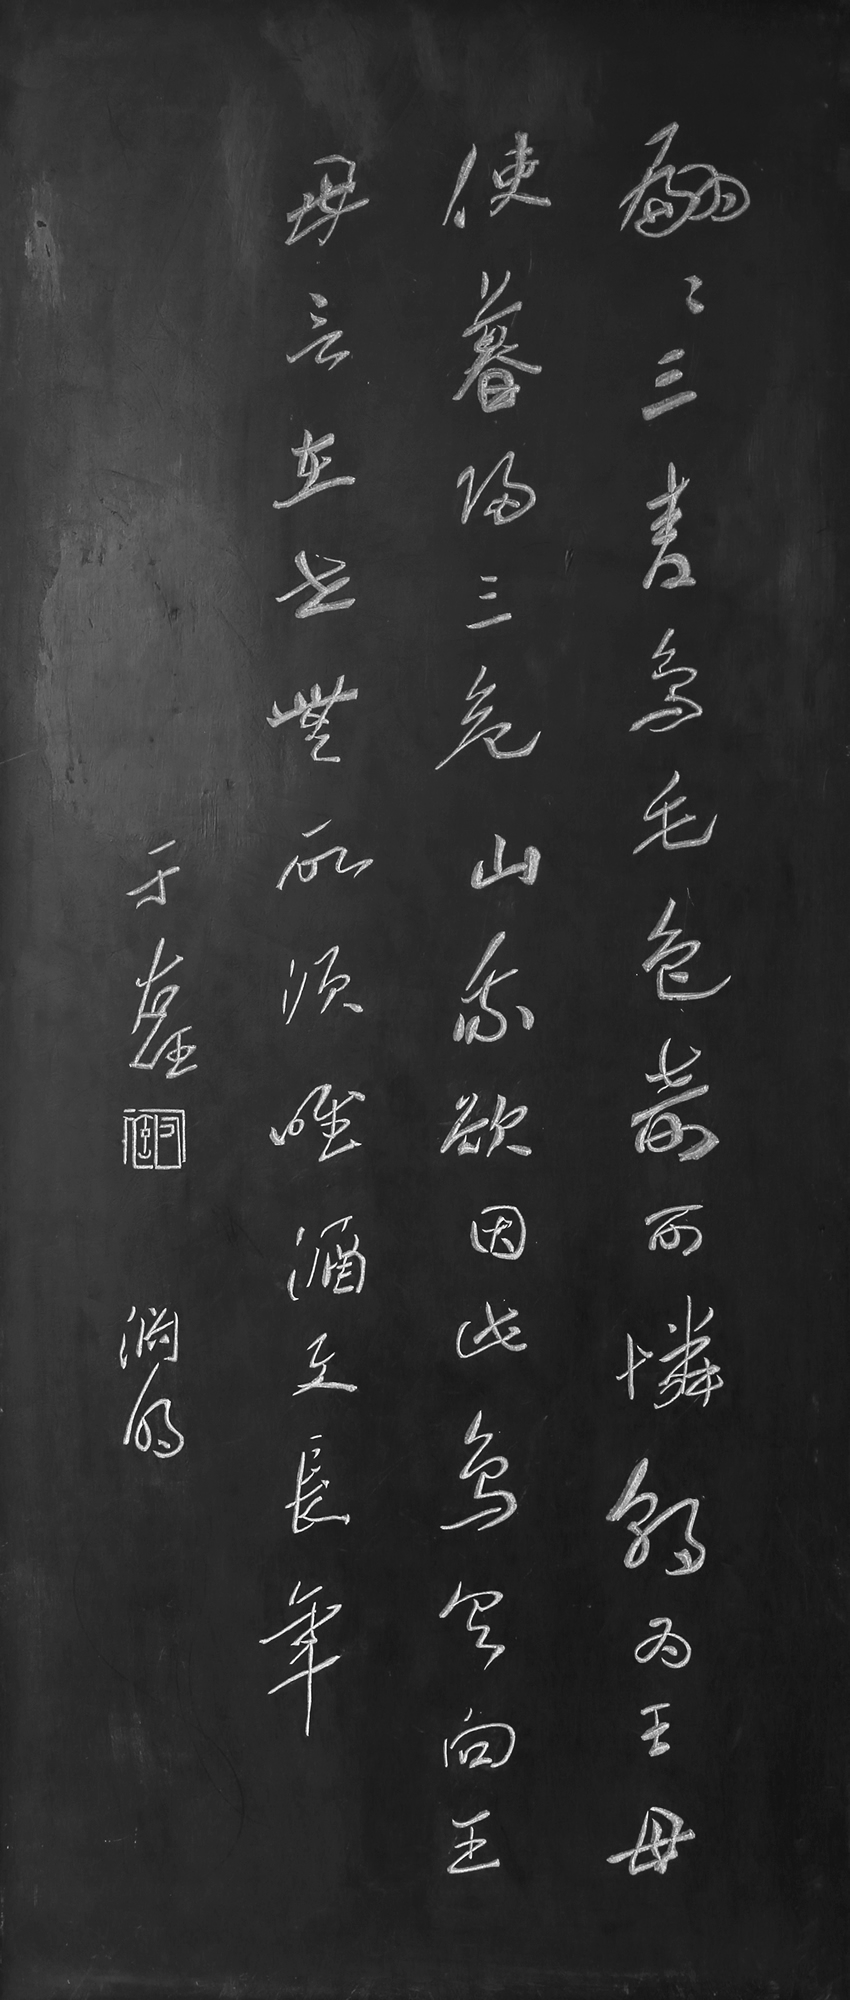 翩〻三青鳥毛色奇可憐朝為王母
使暮歸三危山我欲因此鳥具向王
母言在世無所須唯酒與長年
于右任
淵明